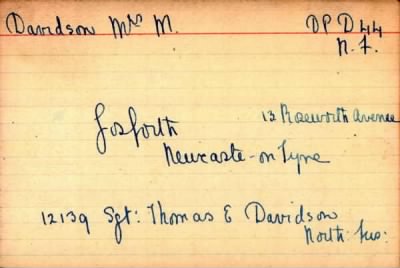 Davidson Mrs M. DP D 44
N. F.
13 Roseworth Avenue
Gosforth
Newcastle-on-Tyne
12139 Sgt: Thomas E Davidson
North: Fus: